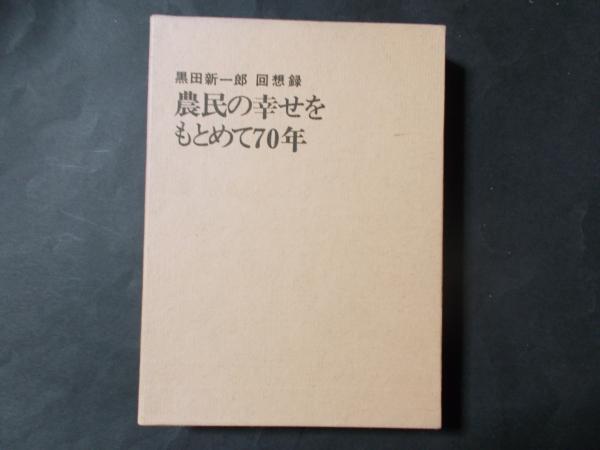 黒田新一郎 回想録
農民の幸せを
もとめて70年